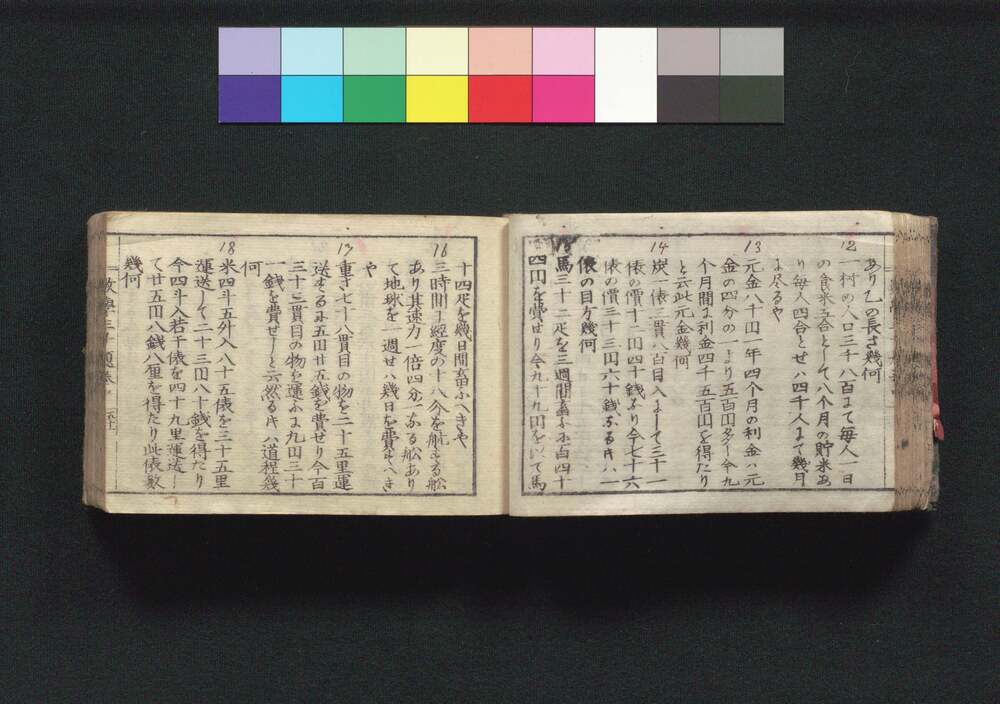 あり乙の長さ幾何
12
一村の人口三千八百にて毎人一日
の食米五合として八个月の貯米あ
り毎人四合とせハ四千人にて幾月
に尽るや
13
元金八千円一年四个月の利金ハ元
金の四分の一より五百円多し今九
个月間に利金四千五百円を得たり
と云此元金幾何
14
炭一俵三貫八百目八にして三十一
俵の價十二円四十銭なり今七十六
俵の價三十三円六十銭なるキハ一
俵の目方幾何
15
馬三十二疋を三週間畜ふに百四十
四円を費せり今九十九円を以て馬
十四疋を幾日間畜ふへきや
16
三時間に經度の十八分を航する舩
あり其速力一倍四分なる舩あり
て地球を一週せハ幾日を費すへき
や
17
重さ七十八貫目の物を二十五里運
送するに五円廿五銭を費せり今百
三十三貫目の物を運ふに九円三十
一銭を費せしと云然るキハ道程幾
何
18
米四斗五升入八十五俵を三十五里
運送して二十三円八十銭を得たり
今四斗入若干俵を四十九里運送し
て廿五円八銭八厘を得たり此俵数
幾何